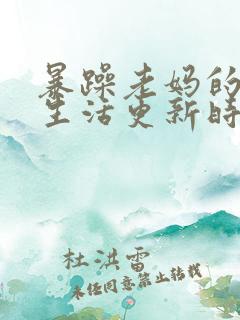 暴躁老妈的
生活更新时
杜洪雷
未经同意禁止转载